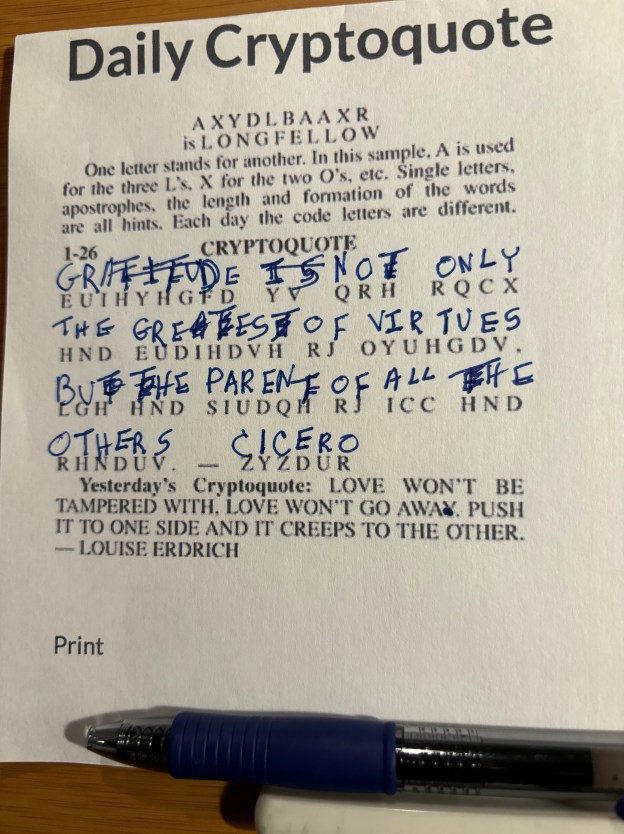 Daily Cryptoquote
AXYDLBAAXR
is LONGFELLOW
One letter stands for another. In this sample, A is used
for the three L's, X for the two O's, etc. Single letters,
apostrophes, the length and formation of the words
are all hints. Each day the code letters are different.
1-26 CRYPTOQUOTE
GRATITUDE IS NOT ONLY
EUIHYHGFD YV QRH RQCX
THE GREATEST OF VIRTUES
HND EUDIHDVH RJ OYUHGDV,
BUT THE PARENT OF ALL THE
LGH HND SIUDQH RJ ICC HND
OTHERS CICERO
RHNDUV. — ZYZDUR
Yesterday's Cryptoquote: LOVE WON'T BE
TAMPERED WITH, LOVE WON'T GO AWAY. PUSH
IT TO ONE SIDE AND IT CREEPS TO THE OTHER.
— LOUISE ERDRICH
Print